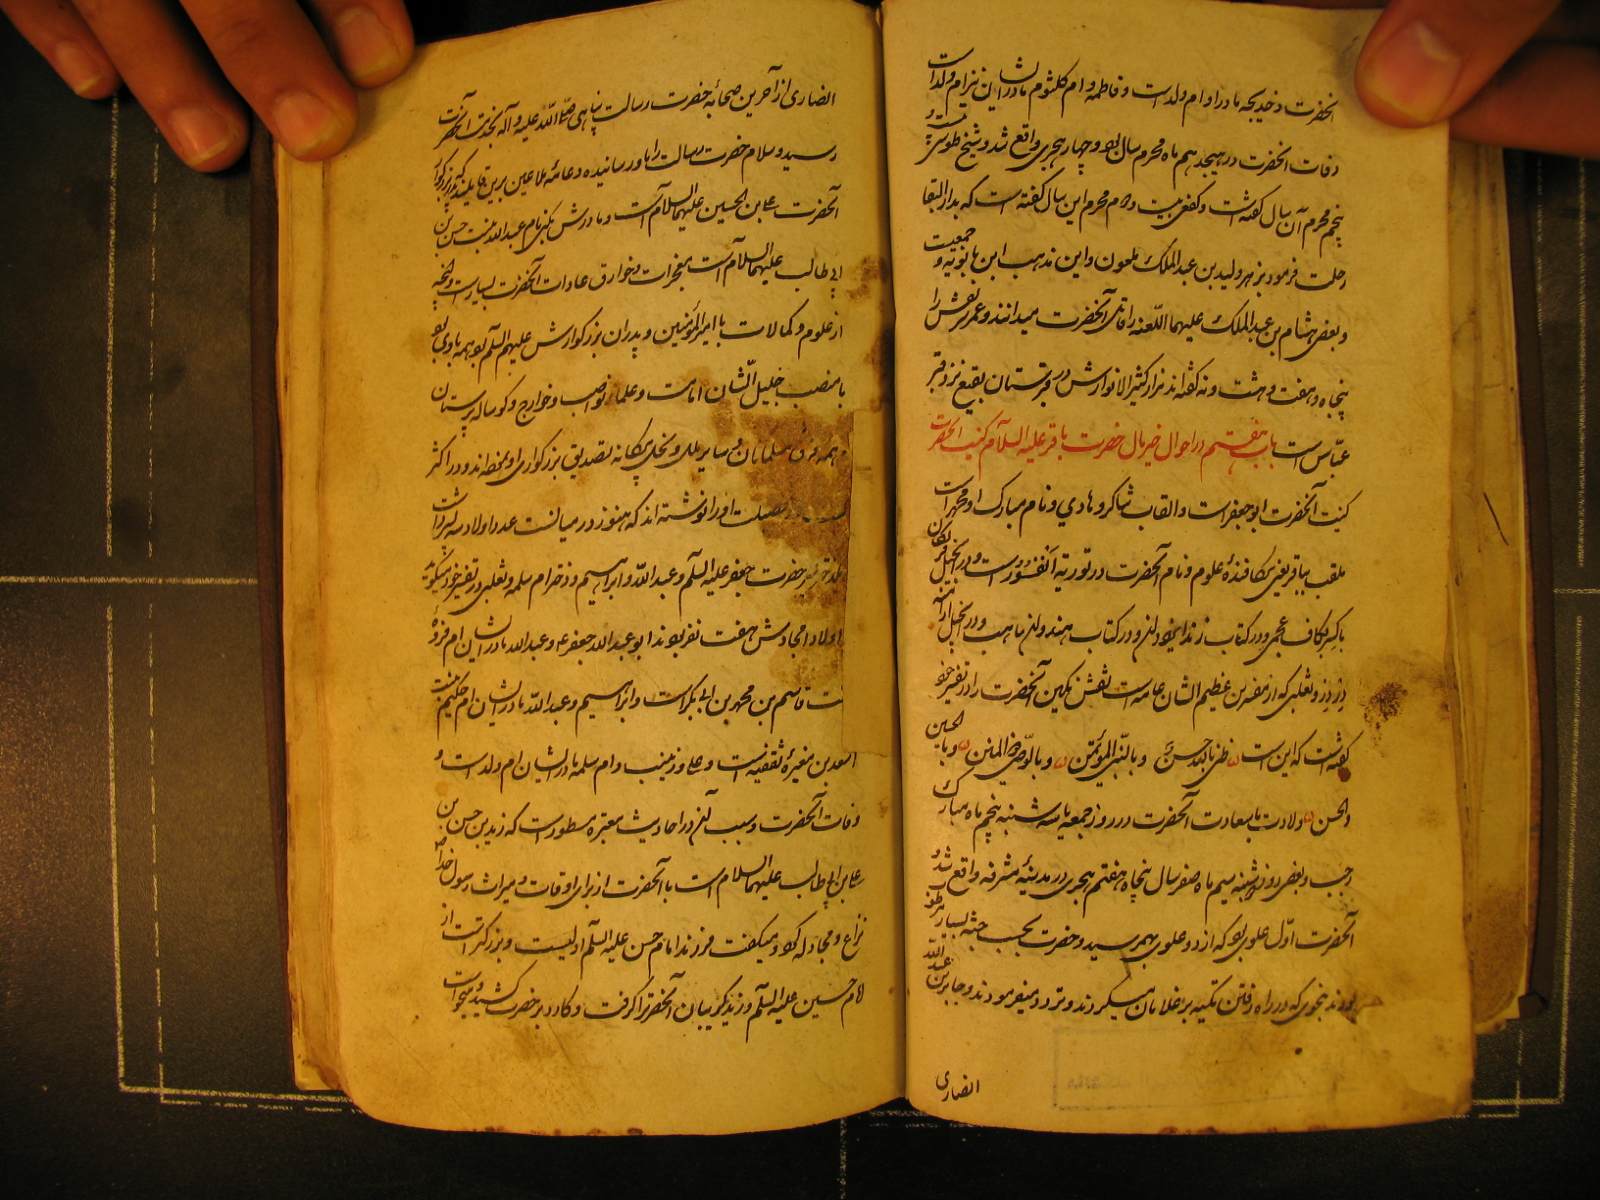 آنحضرت و خدیجه مادر او ام ولد است و فاطمه و ام کلثوم مادر ایشان نیز ام ولد است
وفات آنحضرت در هیجدهم ماه محرم سال نود و چهار هجری واقع شد و شیخ طوسی بیست و
پنجم محرم آن سال گفته است و کفعمی بیست و دوم محرم این سال گفته است که بدار البقا
رحلت فرمود بزهر ولید بن عبد الملک ملعون و این مذهب ابن بابویه و جمعیست
و بعضی هشام بن عبد الملک علیهما اللعنه را قاتل آنحضرت میدانند و عمر شریفش را
پنجاه و هفت و هشت و نه گفته اند مزار کثیر الانوارش در قبرستان بقیع نزد قبر
عباس است باب هفتم در احوال خیر مال حضرت باقر علیه السلام کنیت آنحضرت
کنیت آنحضرت ابو جعفر است و القاب شاکر و هادی و نام مبارک او محمد است
ملقب بباقر یعنی شکافنده علوم و نام آنحضرت در توریة است و در انجیل
باکسر کاف عجمی و در کتاب زند و در کتاب هندوان و در انجیل
و ثعلبی که از مفسرین عظیم الشان عامه است نقش نگین آنحضرت را در تفسیر خود
گفته است که این است ظنی بالله حسن و بالنبی المؤتمن و بالوصی ذی المنن و بالحسین
والحسن ولادت با سعادت آنحضرت در روز جمعه یا سه شنبه پنجم ماه مبارک
رجب و بعضی روز دوشنبه سیم ماه صفر سال پنجاه و هفتم هجری در مدینه مشرفه واقع شد و
آنحضرت اول علوی بود که از دو علوی بهم رسید و حضرت بحسب جثه بسیار مربوط
بودند بنحوی که در راه رفتن تکیه بر غلامان میکردند و تردد میفرمودند و جابر بن عبد الله
انصاری
انصاری از آخرین صحابه حضرت رسالت پناهی صلی الله علیه و آله بخدمت آنحضرت
رسید و سلام حضرت رسالت را باو رسانیده و عامه ملاعین برین قایلند که پدر بزرگوار
آنحضرت علی بن الحسین علیهما السلام است و مادرش کنیز نام عبد الله بنت حسن بن
ابی طالب علیهما السلام است معجزات و خوارق عادات آنحضرت بسیار است و آنچه
از علوم و کمالات با امیر المؤمنین و پدران بزرگوارش علیهم السلم بود همه با وی بود
با منصب جلیل الشان امامت و علماء نواصب و خوارج و گوساله پرستان
و همه فرق مسلمانان و سایر ملل و نحل بیگانه تصدیق بزرگواری او نموده اند و در اکثر
او را نوشته اند که هنوز در میانست عدد اولاد سه پسر داشت
حضرت جعفر علیه السلم و عبد الله و ابراهیم و دختر ام سلمه و ثعلبی در تفسیر خود میگوید
اولاد امجادش هفت نفر بودند ابو عبد الله جعفر ع و عبد الله مادر ایشان ام فروه
بنت قاسم بن محمد بن ابی بکر است و ابراهیم و عبد الله مادر ایشان ام حکیم بنت
اسد بن مغیره ثقفیه است و علی و زینب و ام سلمه مادر ایشان ام ولد است و
وفات آنحضرت و سبب آن در احادیث معتبره مسطور است که زید بن حسن بن
علی بن ابی طالب علیهما السلام است با آنحضرت از برای اوقات و میراث رسول خدا ص
نزاع و مجادله کرد و میگفت فرزند امام حسن علیه السلم اولیست و بزرگتر است از
امام حسین علیه السلم و زید گریبان آنحضرت را گرفت و کارد بر حضرت کشید و میخواست